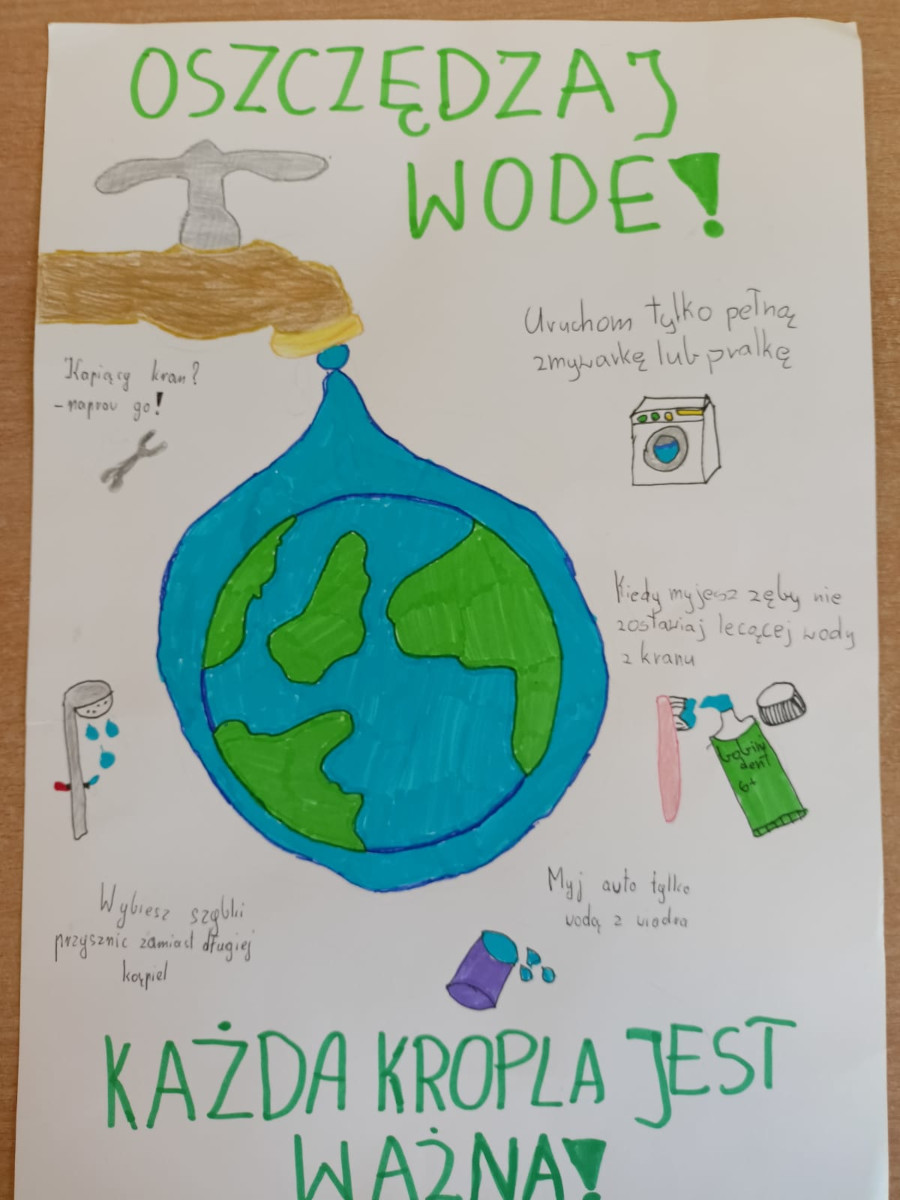 OSZCZĘDZAJ
WODE!
Uruchom tylko pełną
zmywarkę lub pralkę
Kapiący kran?
- napraw go!
Kiedy myjesz zęby nie
zostawiaj lecącej wody
z kranu
6+
Wybiesz szybki
przysznic zamiast długiej
kąpiel
Myj auto tylko
wodą z wiadra
KAŻDA KROPLA JEST
WAŻNA!